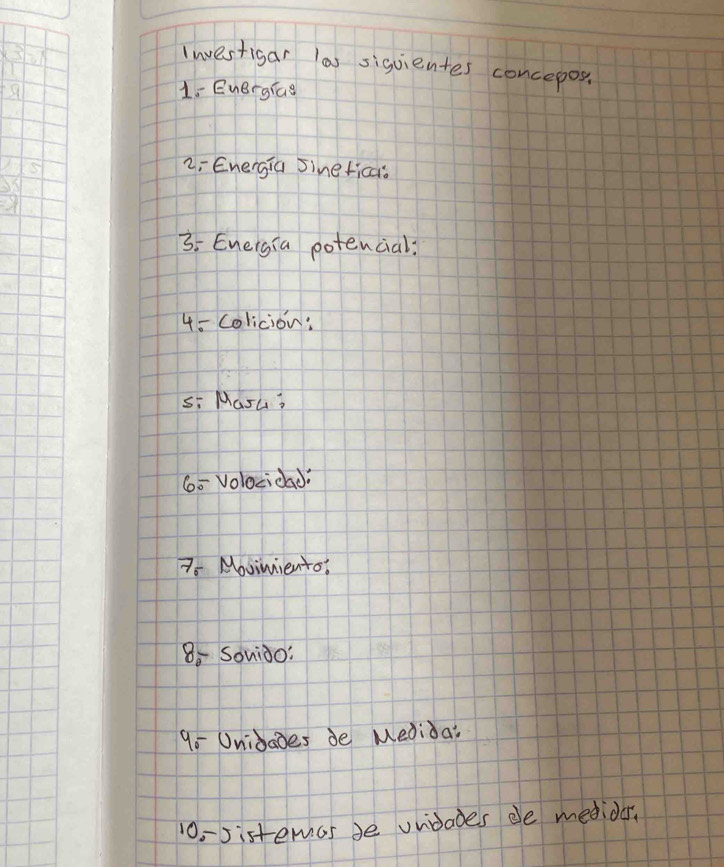 Investigar los siguientes concepos.
1.- Energías
2.- Energía sinetica:
3.- Energía potencial:
4.- Colición:
5.- Masa:
6.- Volocidad:
7.- Movimiento:
8.- Sonido:
9.- Unidades de Medida:
10.- Sistemas de unidades de medida.